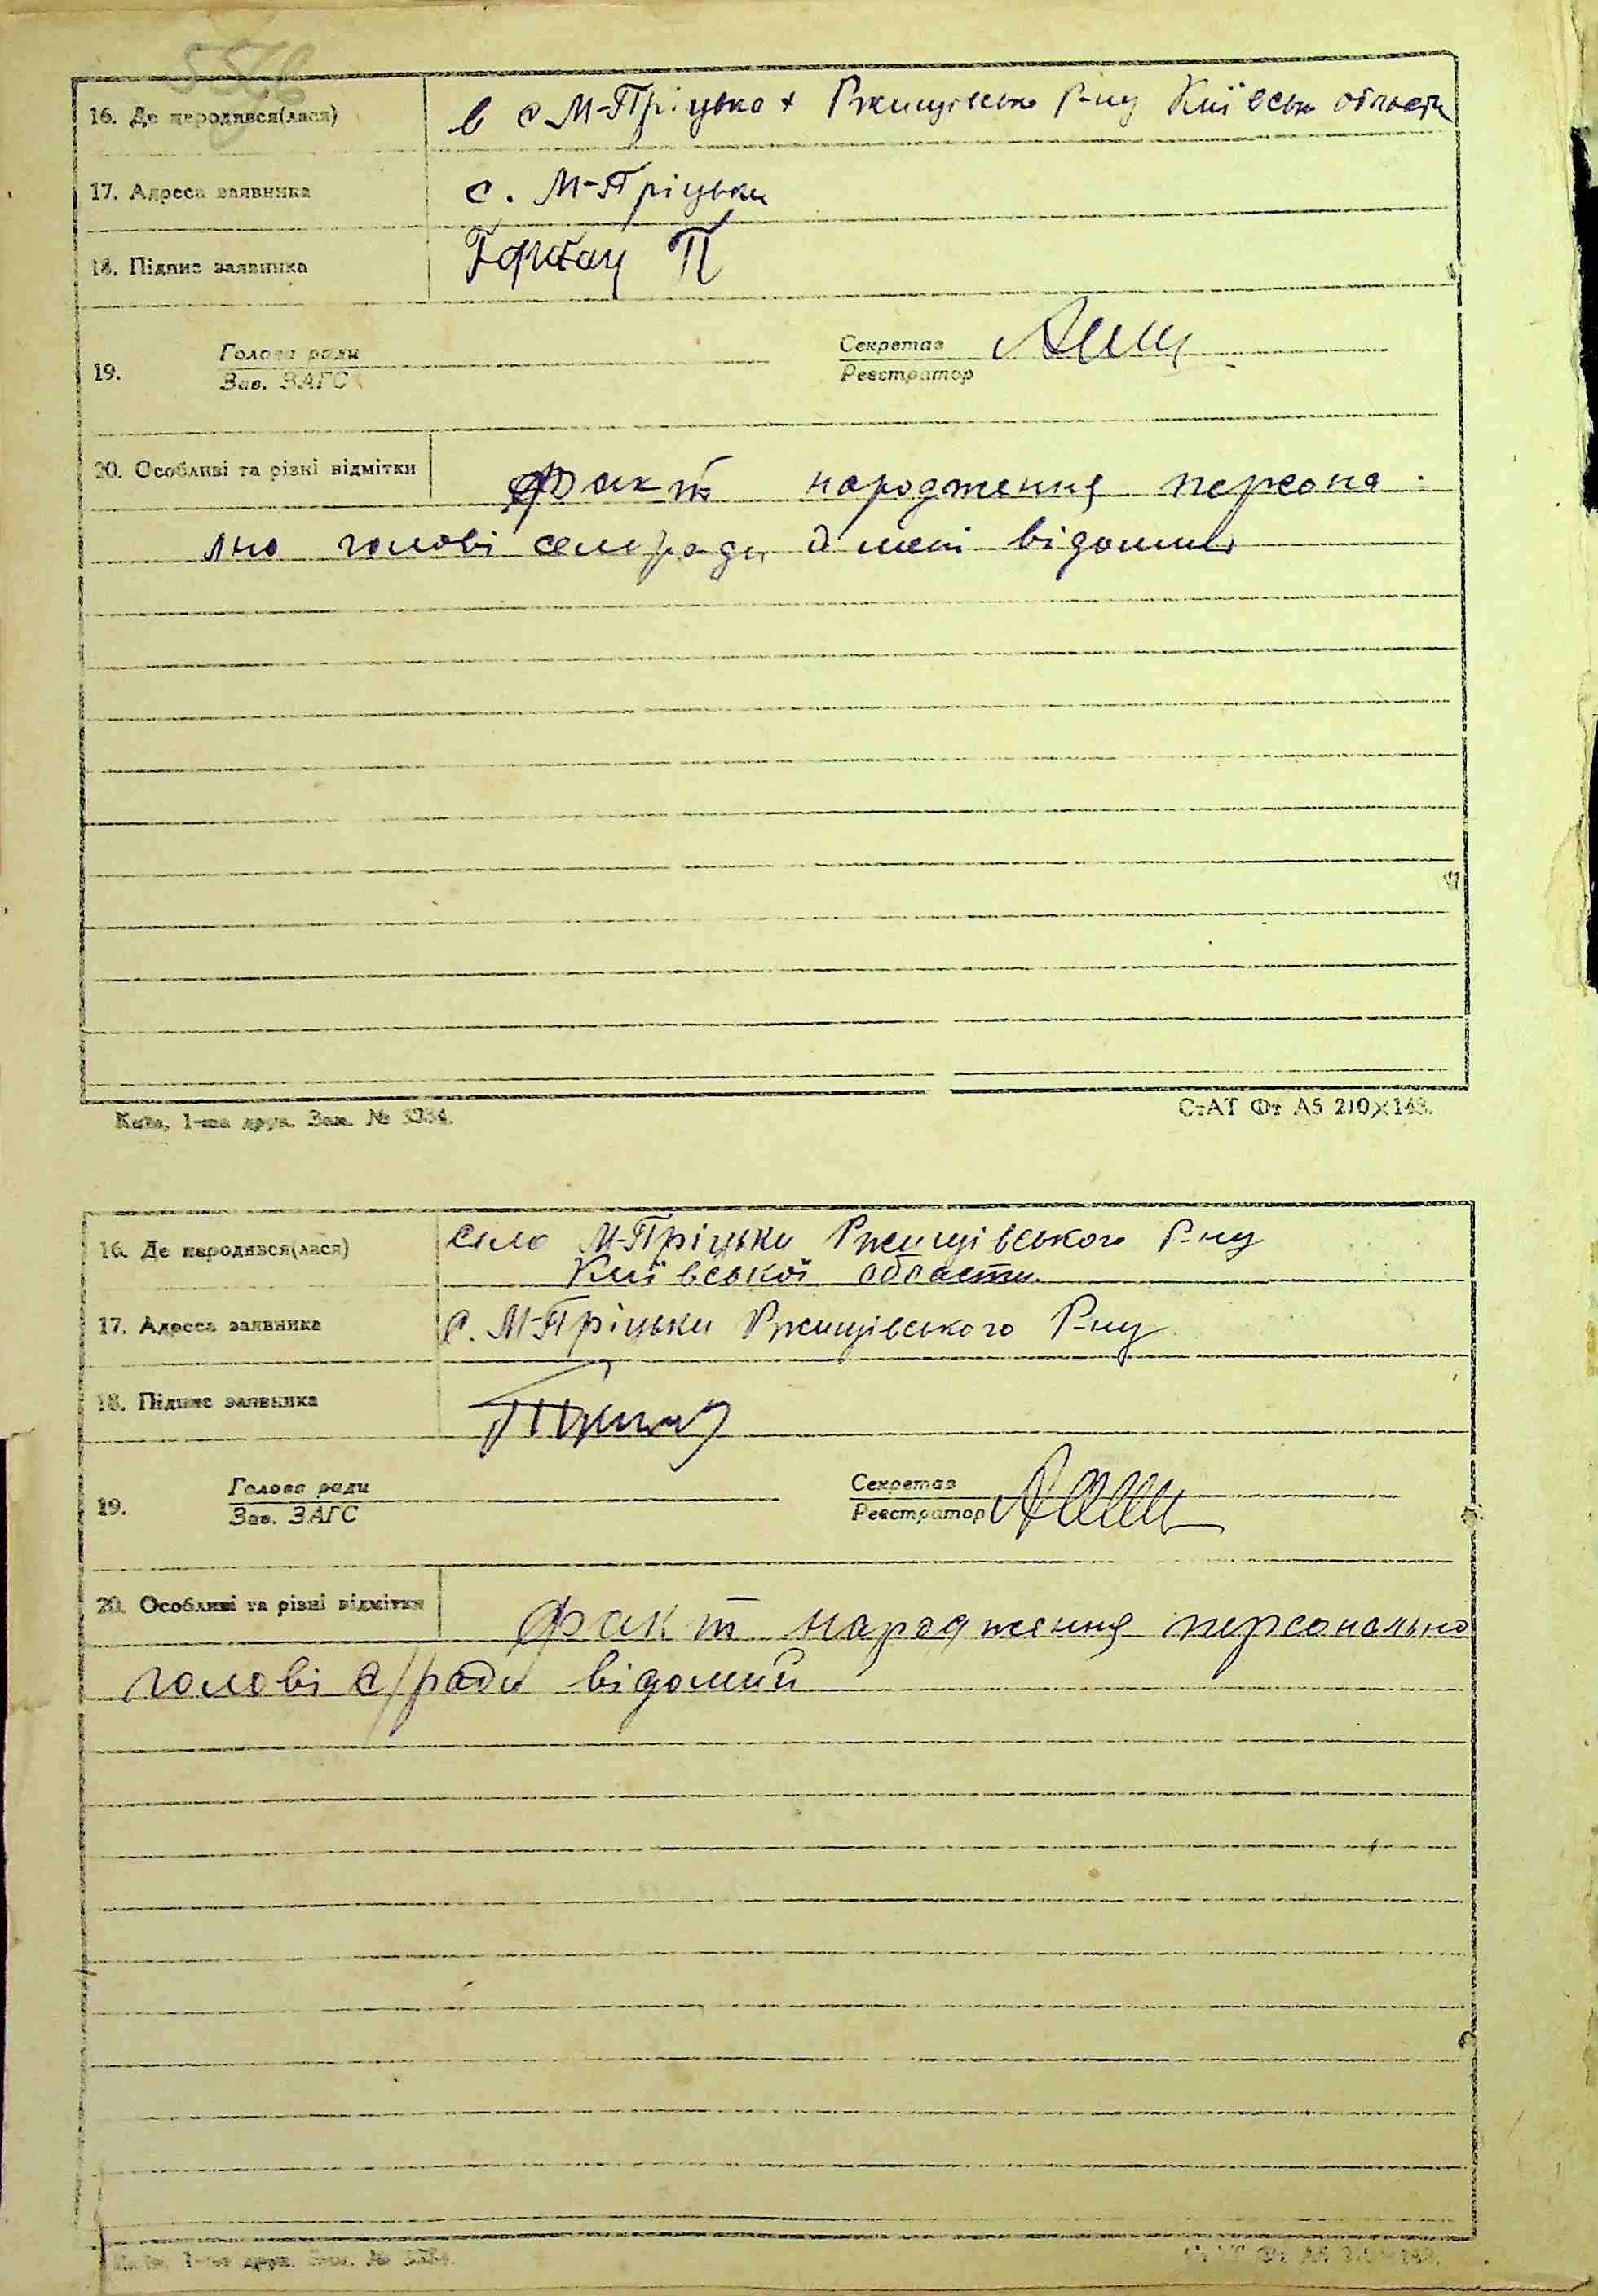 5548
16. Де народився(лася) в с М-Пріцьках Ржищівсько Р-ну Київсько області
17. Адреса заявника с. М-Пріцьки
18. Підпис заявника П
19. Голова ради Секретар
Зав. ЗАГС Реєстратор
20. Особливі та різні відмітки Факт народження персона
льно голові сельради й мені відомий
Київ, 1-ша друк. Зам. № 5234. СтАТ Фт А5 210×148.
16. Де народився(лася) село М-Пріцьки Ржищівського Р-ну
Київської области
17. Адреса заявника с. М-Пріцьки Ржищівського Р-ну
18. Підпис заявника
19. Голова ради Секретар
Зав. ЗАГС Реєстратор
20. Особливі та різні відмітки Факт народження персонально
голові с/ради відомий
Київ, 1-ша друк. Зам. № 5234. СтАТ Фт А5 210×148.